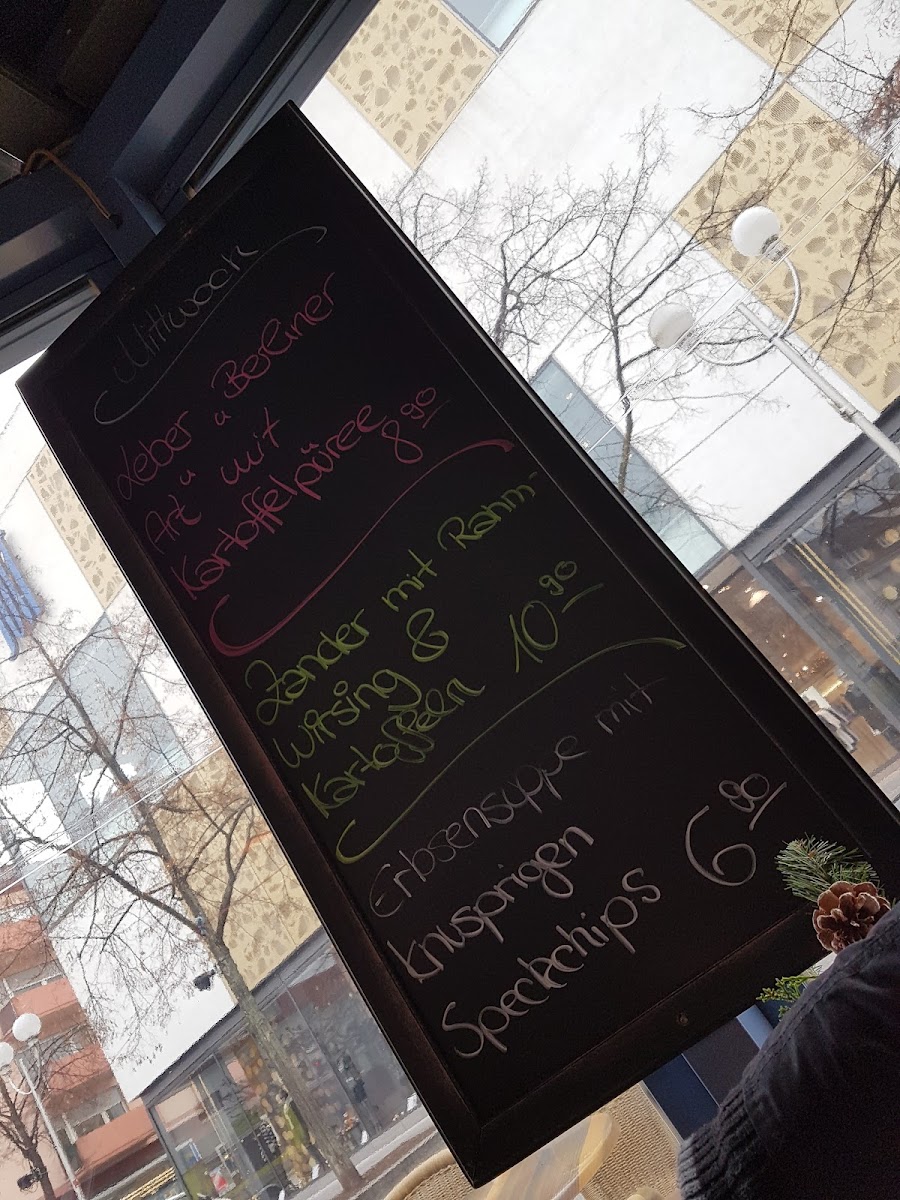 Mittwoch
Leber "Berliner
Art" mit
Kartoffelpüree 8 90
Zander mit Rahm-
Wirsing &
Kartoffeln 10 90
Erbsensuppe mit
knusprigen
Speckchips 6 90